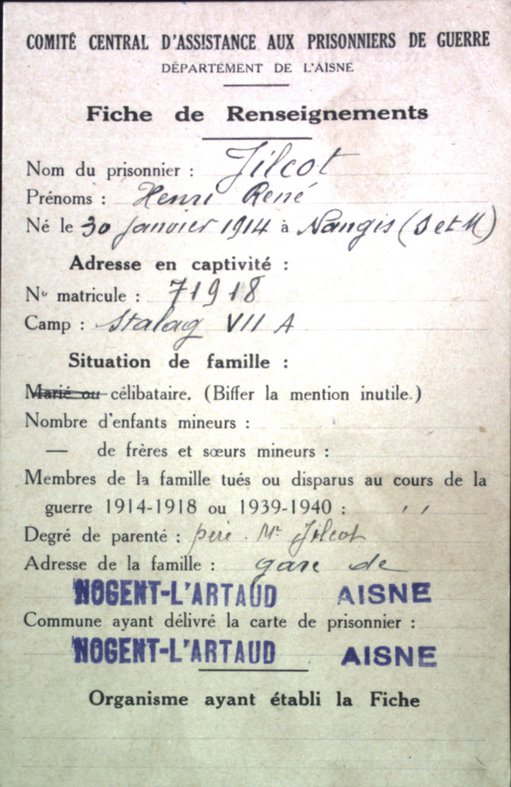 COMITÉ CENTRAL D'ASSISTANCE AUX PRISONNIERS DE GUERRE
DÉPARTEMENT DE L'AISNE
Fiche de Renseignements
Nom du prisonnier : Jilcot
Prénoms : Henri René
Né le 30 Janvier 1914 à Nangis (S et M)
Adresse en captivité :
No matricule : 71918
Camp : Stalag VII A
Situation de famille :
Marié ou célibataire. (Biffer la mention inutile.)
Nombre d'enfants mineurs :
— de frères et sœurs mineurs :
Membres de la famille tués ou disparus au cours de la
guerre 1914-1918 ou 1939-1940 : ''
Degré de parenté : père Mr Jilcot
Adresse de la famille : gare de
NOGENT-L'ARTAUD AISNE
Commune ayant délivré la carte de prisonnier :
NOGENT-L'ARTAUD AISNE
Organisme ayant établi la Fiche